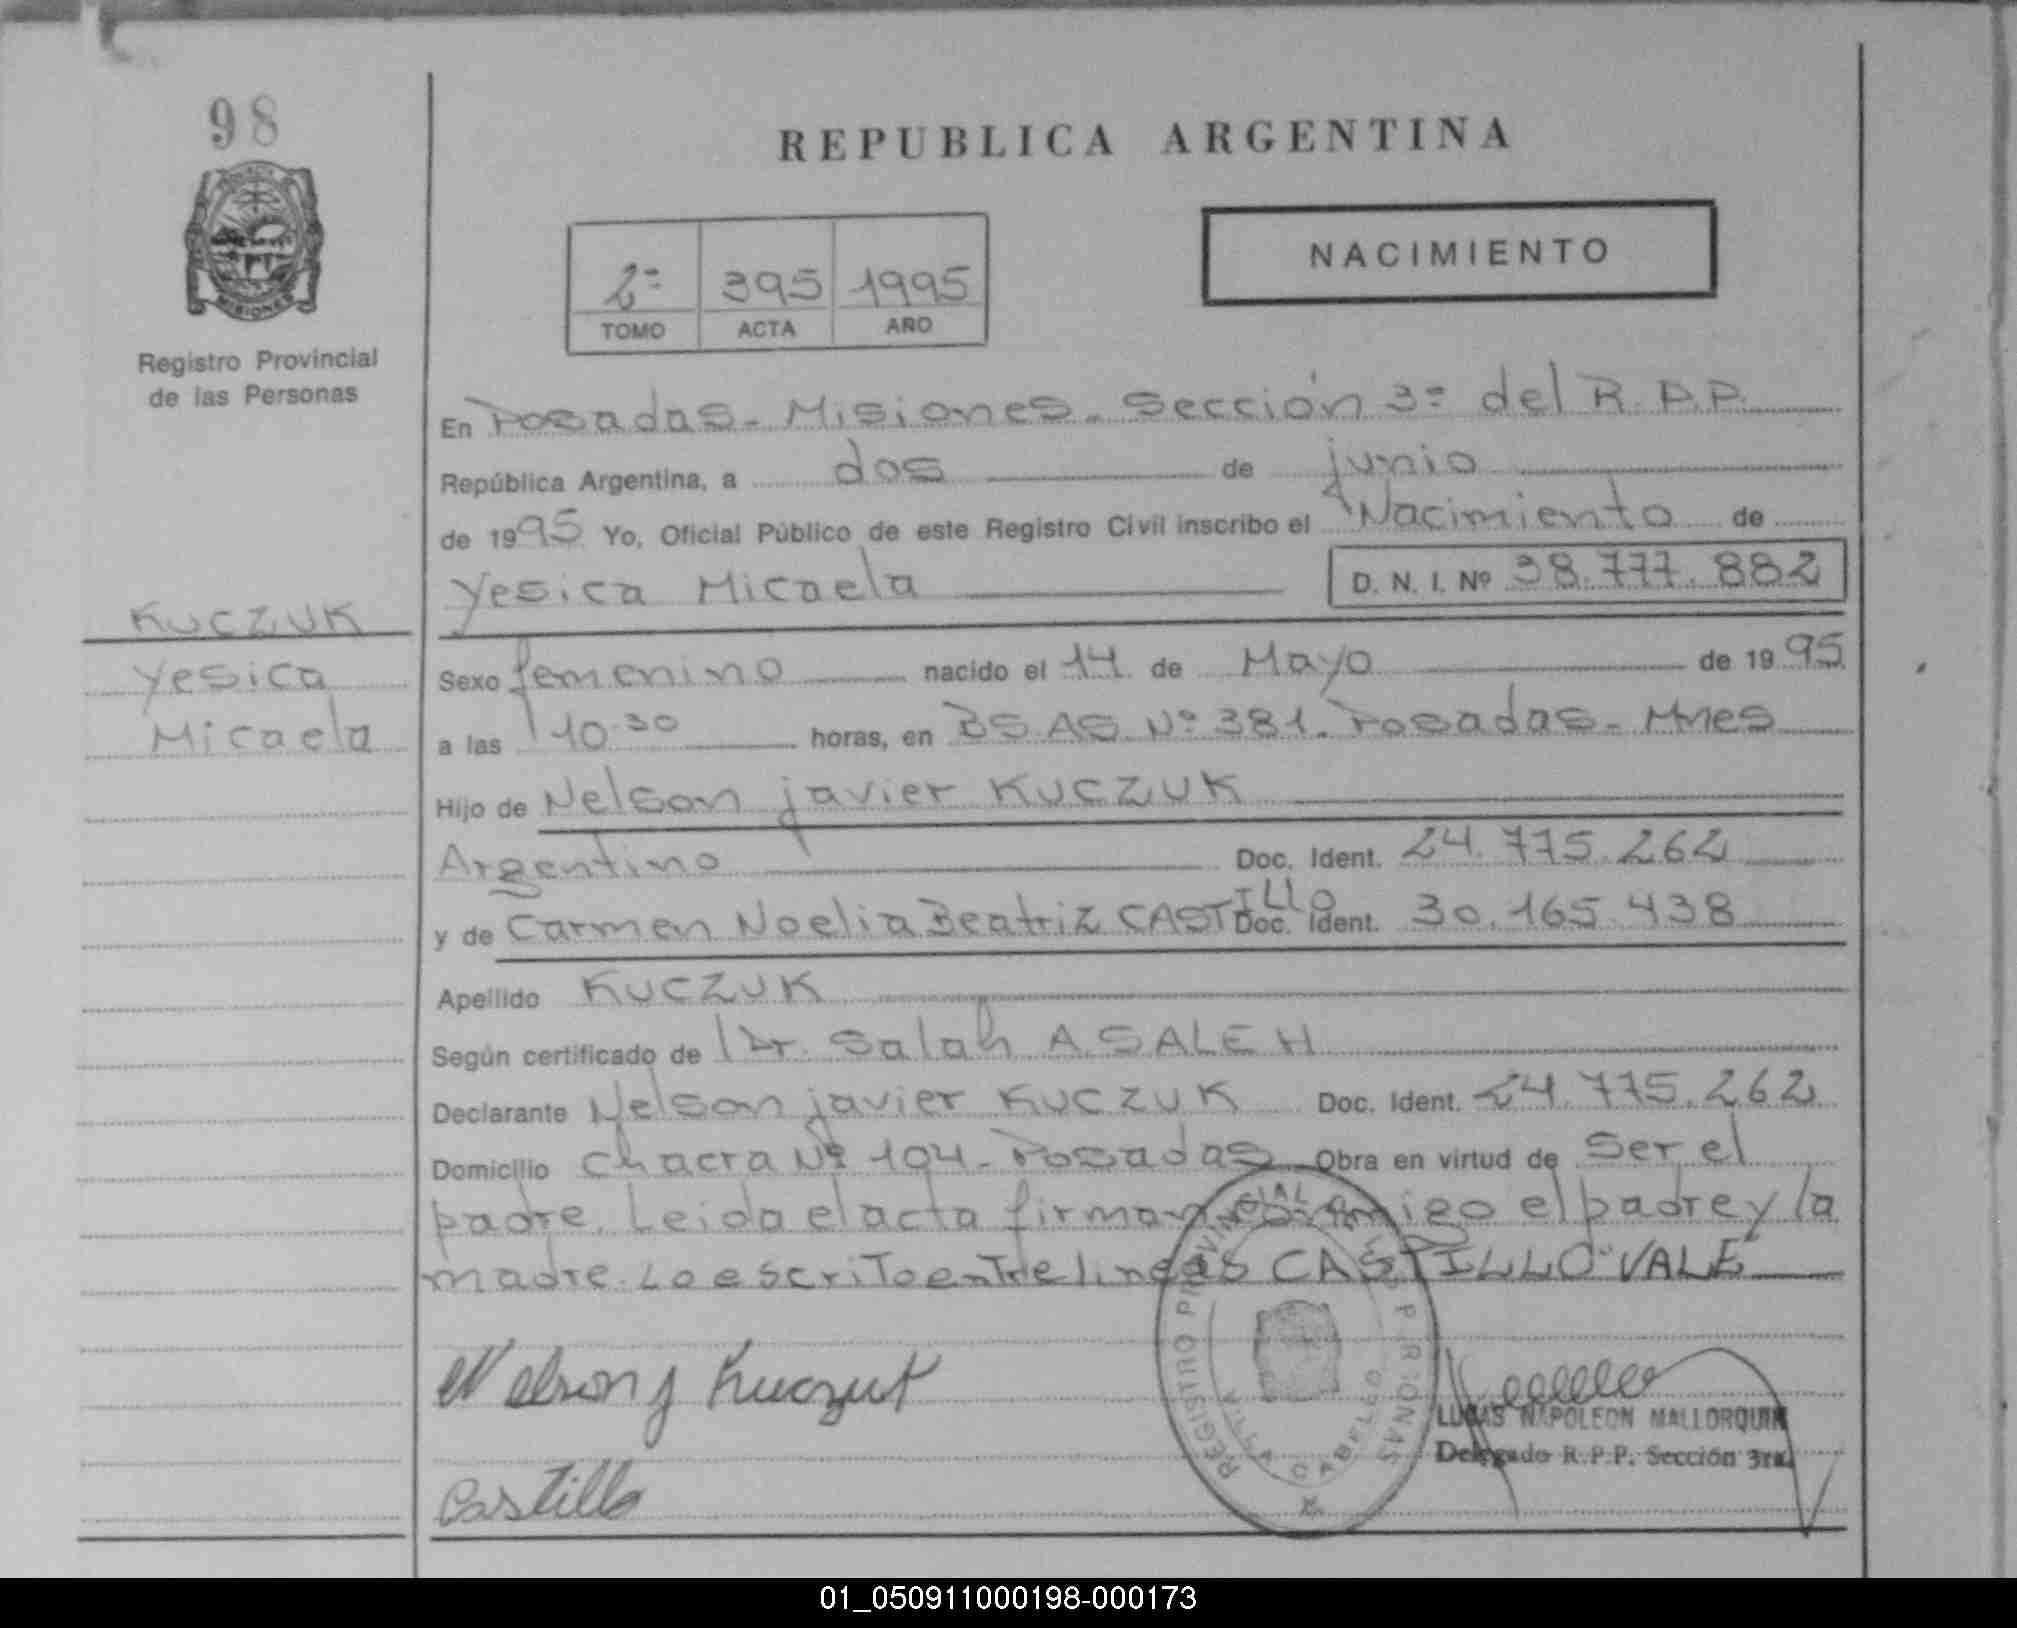 98
MISIONES
Registro Provincial
de las Personas
KUCZUK
Yesica
Micaela
REPUBLICA ARGENTINA
2º 395 1995
TOMO ACTA AÑO
NACIMIENTO
En Posadas - Misiones - Sección 3º del R.P.P.
República Argentina, a dos de junio
de 1995 Yo, Oficial Público de este Registro Civil inscribo el Nacimiento de
Yesica Micaela D. N. I. Nº 38.777.882
Sexo femenino nacido el 14 de Mayo de 1995
a las 10.30 horas, en BS AS Nº 381. Posadas - Mnes
Hijo de Nelson javier KUCZUK
Argentino Doc. Ident. 24.775.262
y de Carmen Noelia Beatriz CASTILLO Doc. Ident. 30.165.438
Apellido KUCZUK
Según certificado de Dr. Salah A. SALEH
Declarante Nelson javier KUCZUK Doc. Ident. 24.775.262
Domicilio Chacra Nº 104 - Posadas Obra en virtud de Ser el
padre. Leida el acta firman conmigo el padre y la
madre. Lo escrito entre lineas CASTILLO "VALE
Nelson J Kuczuk
Castillo
REGISTRO PROVINCIAL DE LAS PERSONAS
VILLA CABELLO
LUCAS NAPOLEON MALLORQUIN
Delegado R.P.P. Sección 3ra.
01_050911000198-000173